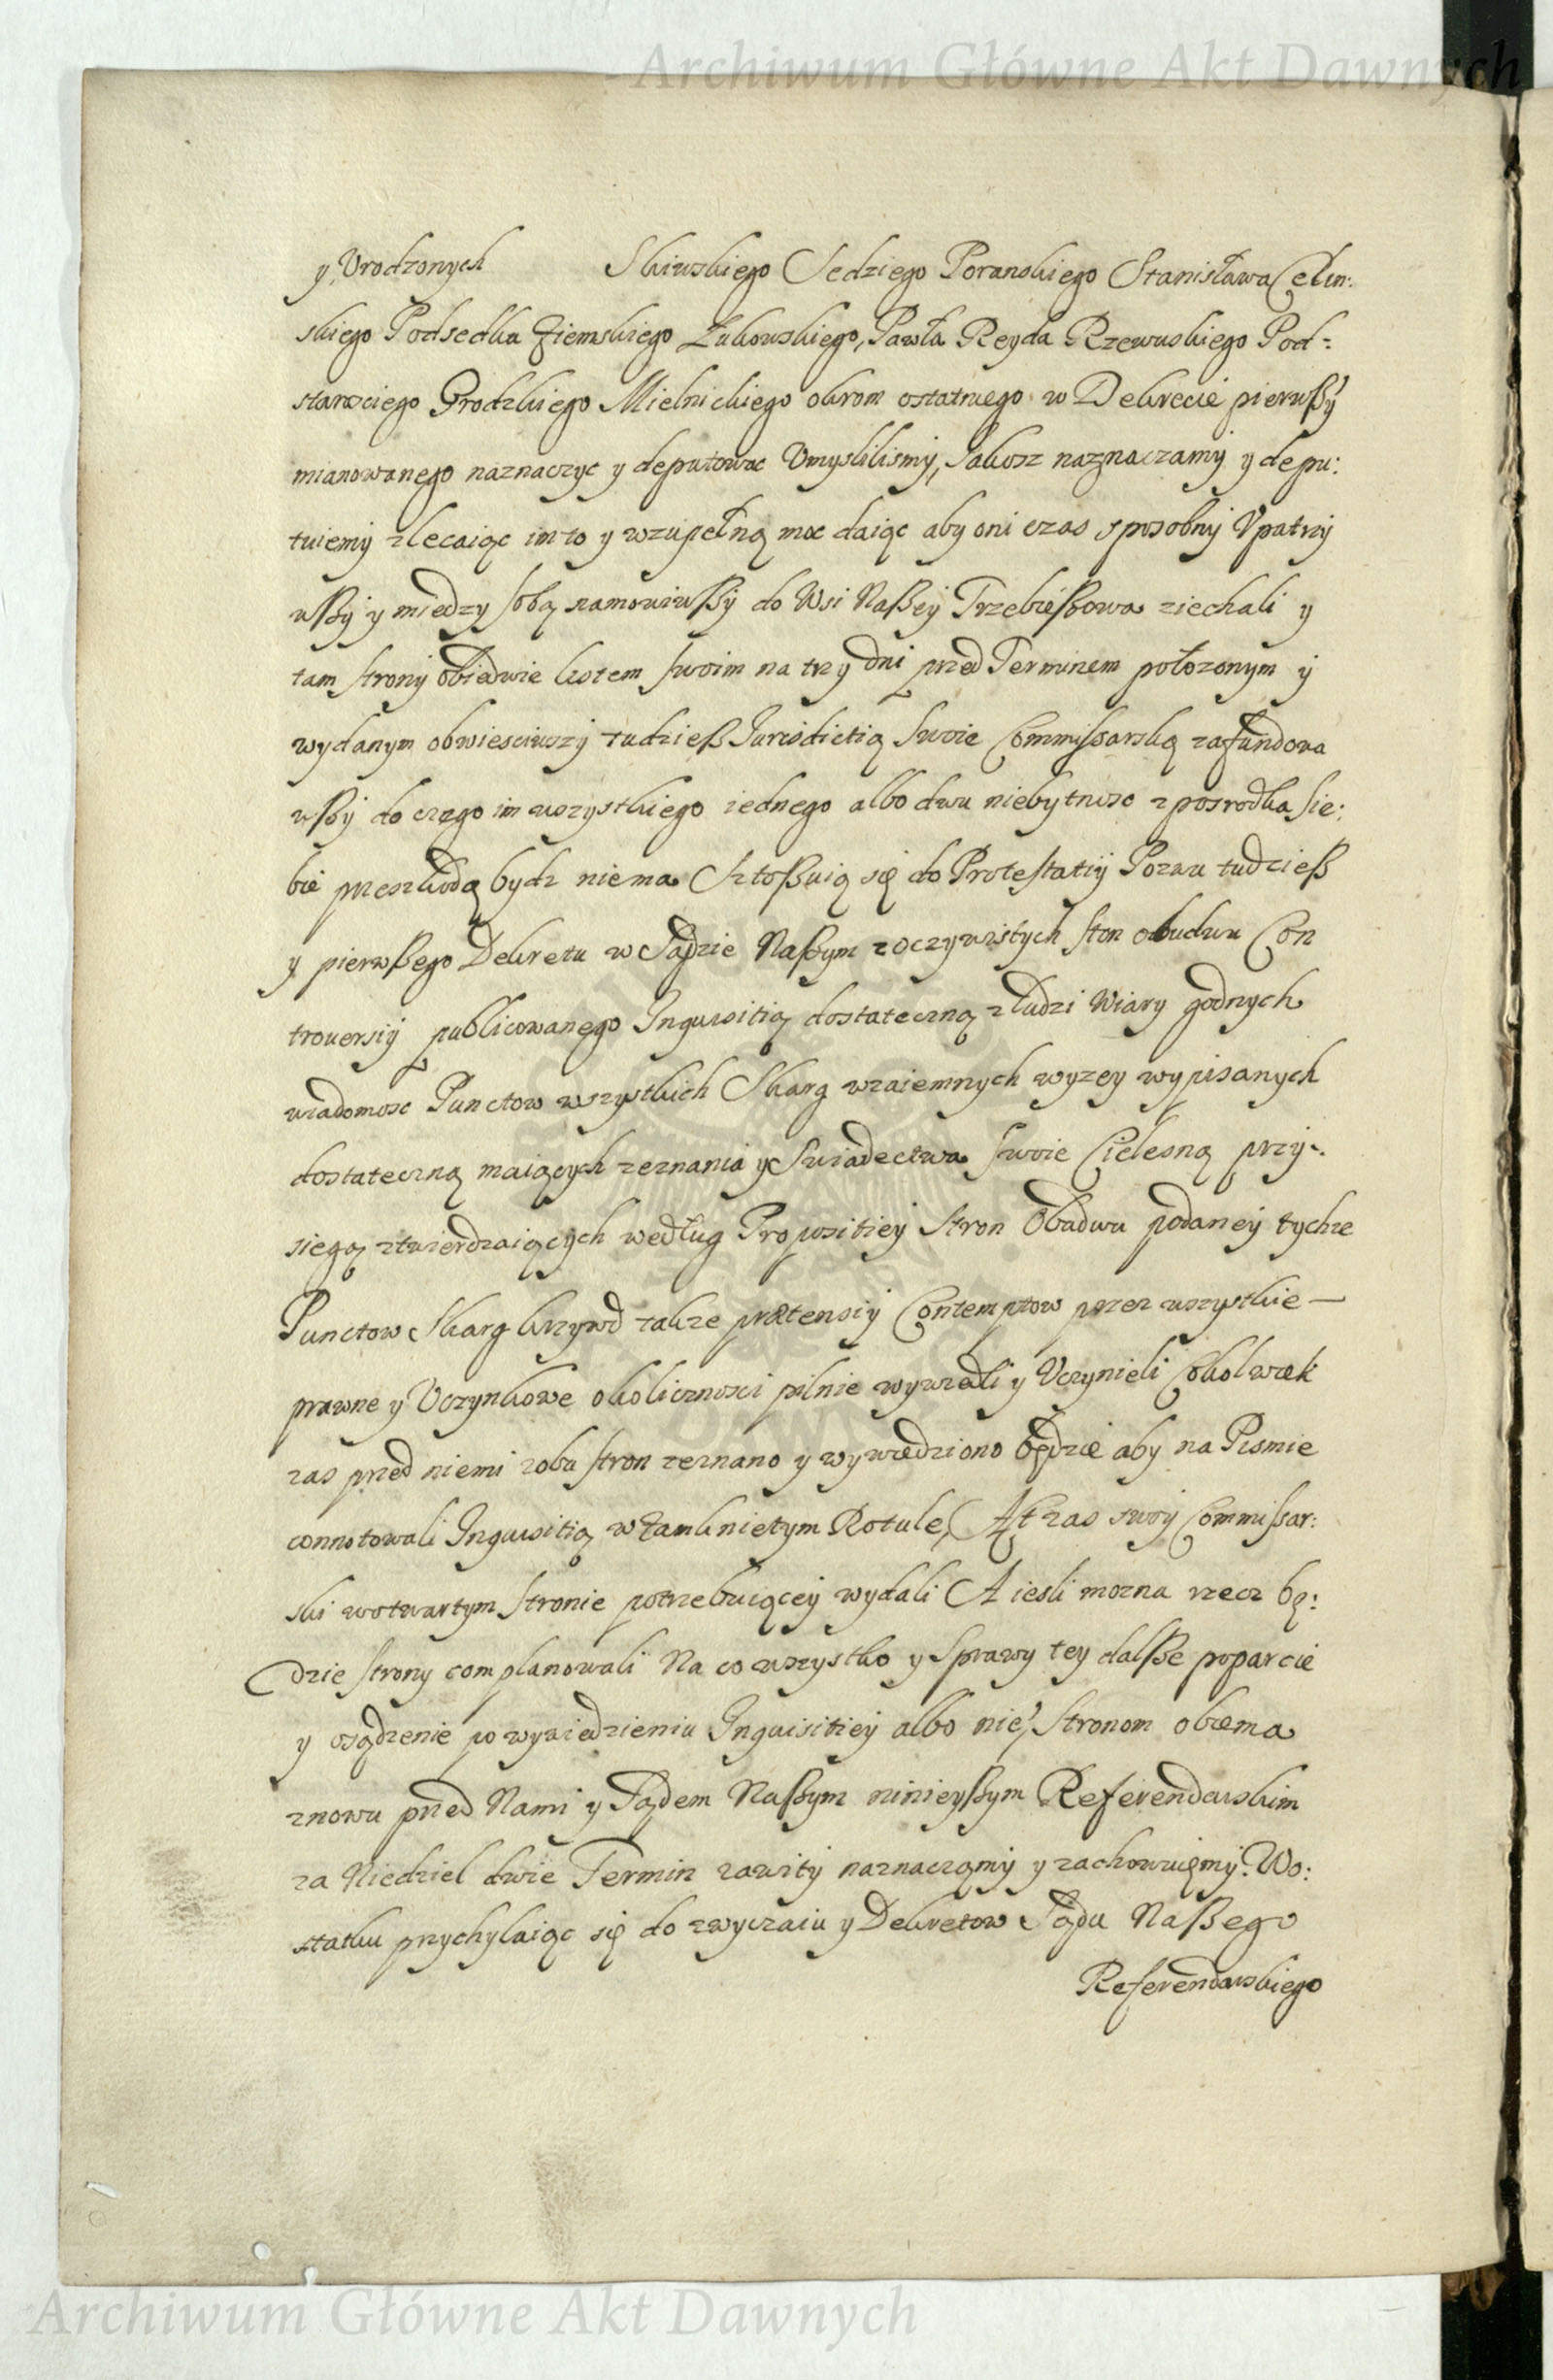 Archiwum Główne Akt Dawnych
y Vrodzonych Skiwskiego Sedziego Poranskiego Stanisława Celin:
skiego Podsedka Ziemskiego Łukowskiego, Pawła Reyda Rzewuskiego Pod=
starosciego Grodzkiego Mielnickiego okrom ostatniego w Dekrecie pierwßÿ
mianowanego naznaczyc y deputowac Vmyslilismÿ, Jakosz naznaczamÿ y depu:
tuiemÿ zlecaiąc im to y wzupełną moc daiąc aby oni czas sposobnÿ Vpatrzÿ
wßÿ y miedzy sobą namowiwßÿ do Wsi Naßeÿ Trzebießowa ziechali y
tam stronÿ obiedwie listem swoim na trzy dni przed Terminem położonym ÿ
wydanym obwiesciwszÿ tudzieß Jurisdictią swoie Commissarską zafundowa
wßÿ do czego im wszystkiego iednego albo dwu niebytnosc z posrodka sie:
bie przeszkodą bydz niema Sztoßuią się do Protestatiÿ Pozwu tudzieß
y pierwßego Dekretu w Sądzie Naßym z oczywistych ston obudwu Con
trouersiÿ publicowanego Inquisitią dostateczną z Ludzi Wiary godnych
wiadomosc Punctow wszystkich Skarg wzaiemnych wyzey wypisanych
dostateczną maiących zeznania y Swiadectwa swoie Cielesną przÿ-
siegą ztwierdzaiących według Propositieÿ stron Obudwu podaneÿ tychze
Punctow Skarg krzywd takze prætensiÿ Contemptow przez wszystkie —
prawne y Vczynkowe okolicznosci pilnie wywiedli y Vczynieli Cokolwiek
zas przed niemi zobu stron zeznano y wywiedziono będzie aby na Pismie
connotowali Inquisitią w Zamknietym Rotule, Akt zas swoÿ Commissar:
ski wotwartym stronie potrzebuiąceÿ wydali A iesli mozna rzecz bę:
dzie strony complanowali Na co wszystko y Sprawy tey dalsze poparcie
y osądzenie po wywiedzieniu Inquisitieÿ albo nie, Stronom obiema
znowu przed Nami y Sądem Naßym ninieyßym Referendarskim
za Niedziel dwie Termin zawitÿ naznaczamÿ y zachowuiemÿ. Wo:
statku przychylaiąc się do zwyczaiu y Dekretow Sądu Naßego
Referendarskiego
Archiwum Główne Akt Dawnych